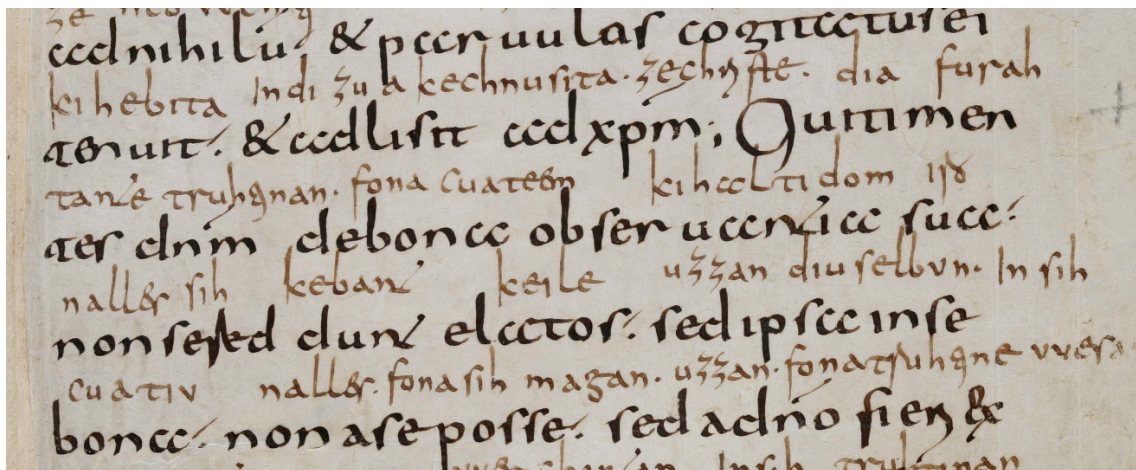 ad nihilu. & paruulas cogitatus ei
kihebita Indi zua kechnusita. zechriste. dia furah
tenuit. & adlisit ad xpm; Qui timen
tante truhtinan. fona cuateru kihaltidom iro
tes dnm de bona obseruantia sua.
nalles sih kebant keile uzzan diu selbvn. In sih
non se reddunt elatos. sed ipsa in se
cuativ nalles. fona sih magan. uzzan. fona truhtine vvesa
bona. non a se posse. sed a dno fieri ex